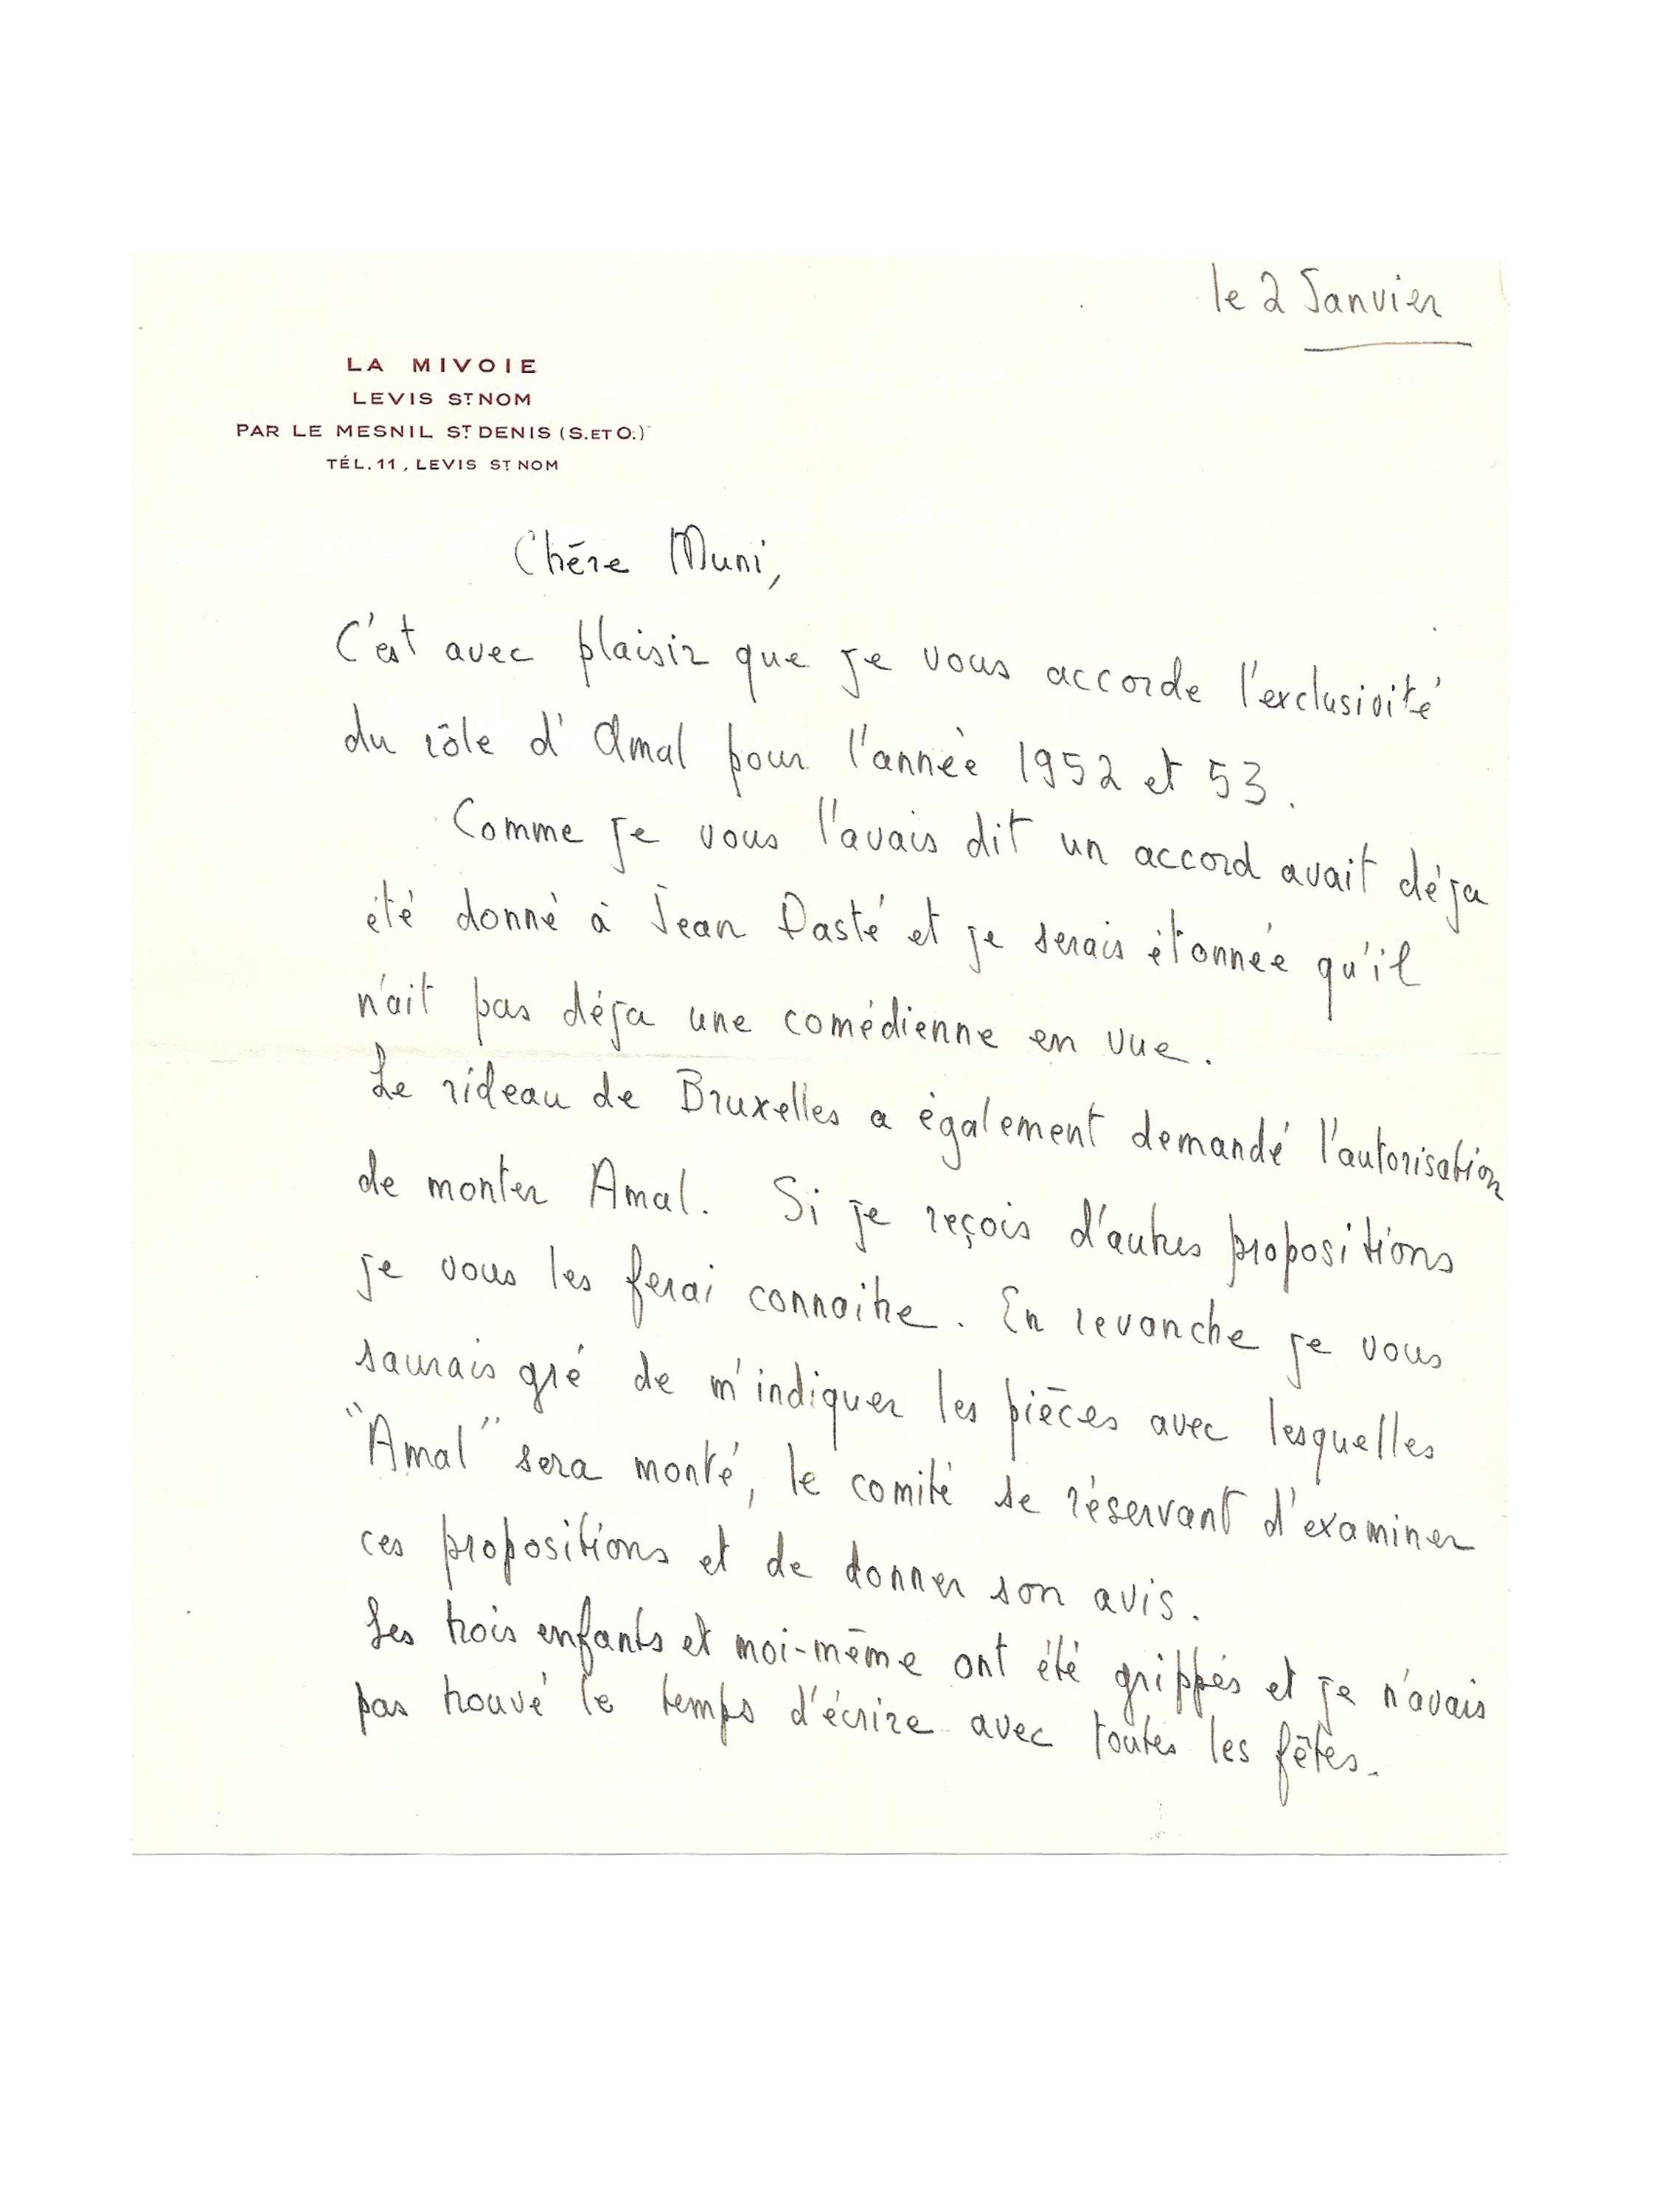 le 2 Janvier
LA MIVOIE
LEVIS ST NOM
PAR LE MESNIL ST DENIS (S. ET O.)
TÉL. 11, LEVIS ST NOM
Chère Muni,
C'est avec plaisir que je vous accorde l'exclusivité
du rôle d'Amal pour l'année 1952 et 53.
Comme je vous l'avais dit un accord avait déja
été donné à Jean Dasté et je serais étonnée qu'il
n'ait pas déja une comédienne en vue.
Le rideau de Bruxelles a également demandé l'autorisation
de monter Amal. Si je reçois d'autres propositions
je vous les ferai connaitre. En revanche je vous
saurais gré de m'indiquer les pièces avec lesquelles
"Amal" sera monté, le comité se réservant d'examiner
ces propositions et de donner son avis.
Les trois enfants et moi-même ont été grippés et je n'avais
pas trouvé le temps d'écrire avec toutes les fêtes.